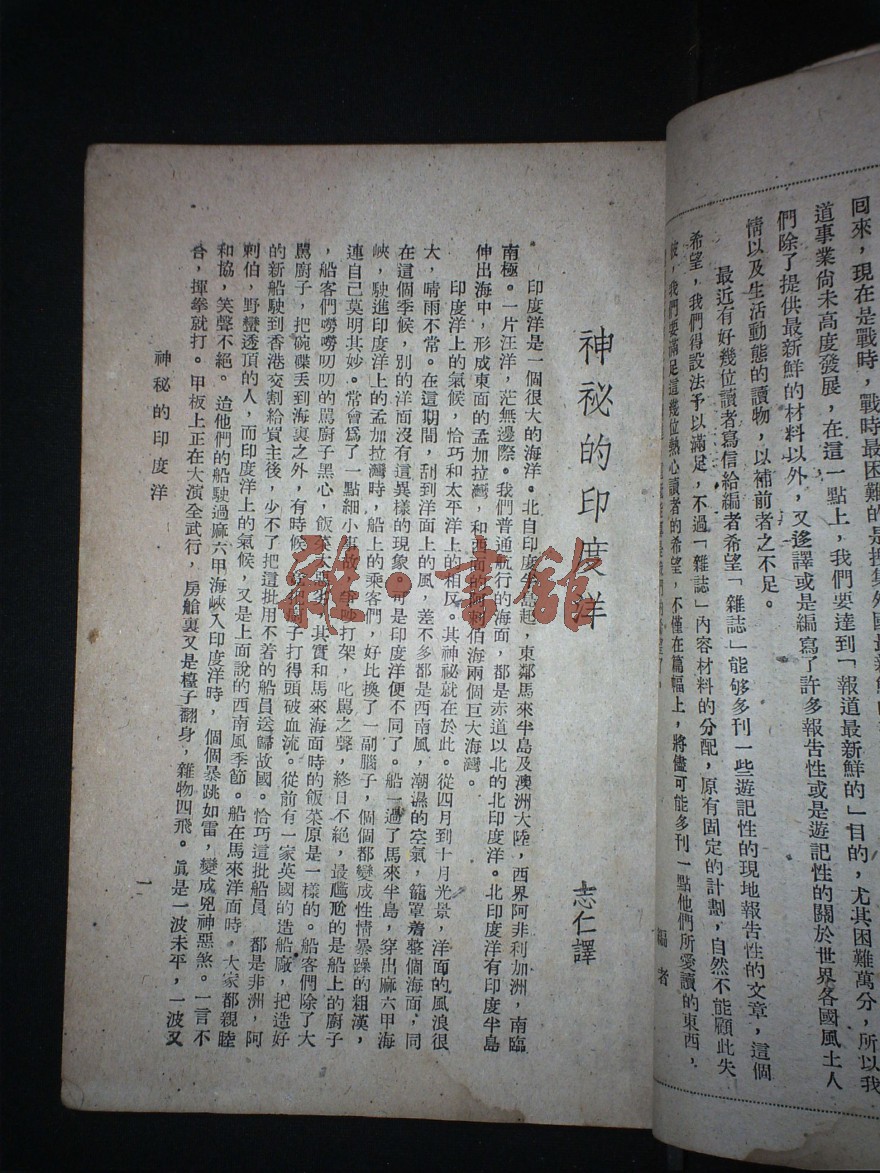 回來，現在是戰時，戰時最困難的是搜集外國最新鮮的
道事業尚未高度發展，在這一點上，我們要達到「報道最新鮮的」目的，尤其困難萬分，所以我
們除了提供最新鮮的材料以外，又迻譯或是編寫了許多報告性或是遊記性的關於世界各國風土人
情以及生活動態的讀物，以補前者之不足。
最近有好幾位讀者寫信給編者希望「雜誌」能够多刊一些遊記性的現地報告性的文章，這個
希望，我們得設法予以滿足，不過「雜誌」內容材料的分配，原有固定的計劃，自然不能顧此失
彼，我們要滿足這幾位熱心讀者的希望，不僅在篇幅上，將儘可能多刊一點他們所愛讀的東西，
編者
神祕的印度洋
志仁譯
印度洋是一個很大的海洋。北自印度半島起，東鄰馬來半島及澳洲大陸，西界阿非利加洲，南臨
南極。一片汪洋，茫無邊際。我們普通航行的海面，都是赤道以北的北印度洋。北印度洋有印度半島
伸出海中，形成東面的孟加拉灣，和西面的阿剌伯海兩個巨大海灣。
印度洋上的氣候，恰巧和太平洋上的相反。其神祕就在於此。從四月到十月光景，洋面的風浪很
大，晴雨不常。在這期間，刮到洋面上的風，差不多都是西南風，潮濕的空氣，籠罩着整個海面，同
在這個季候，別的洋面沒有這異樣的現象。可是印度洋便不同了。船一過了馬來半島，穿出麻六甲海
峽，駛進印度洋上的孟加拉灣時，船上的乘客們，好比換了一副腦子，個個都變成性情暴躁的粗漢，
連自己莫明其妙。常會爲了一點細小事故，爭吵打架，叱罵之聲，終日不絕，最尶尬的是船上的廚子
，船客們嘮嘮叨叨的罵廚子黑心，飯菜太　其實和馬來海面時的飯菜原是一樣的。船客們除了大
罵廚子，把碗碟丟到海裏之外，有時候　把廚子打得頭破血流。從前有一家英國的造船廠，把造好
的新船駛到香港交割給買主後，少不了把這批用不着的船員送歸故國。恰巧這批船員　都是非洲，阿
剌伯，野蠻透頂的人，而印度洋上的氣候，又是上面說的西南風季節。船在馬來洋面時，大家都親睦
和協，笑聲不絕。迨他們的船駛過麻六甲海峽入印度洋時，個個暴跳如雷，變成兇神惡煞。一言不
合，揮拳就打。甲板上正在大演全武行，房艙裏又是檯子翻身，雜物四飛。眞是一波未平，一波又
神祕的印度洋
一
雜·書館